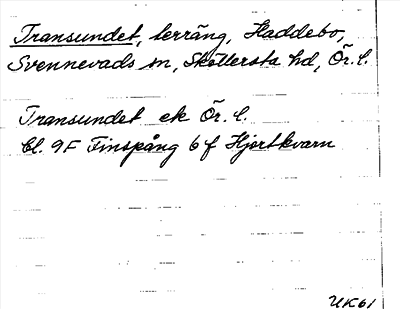 Transundet, terräng, Haddebo,
Svennevads sn, Sköllersta hd, Ör. l.
Transundet ek Ör. l.
bl. 9F Finspång 6f Hjortkvarn
UK61